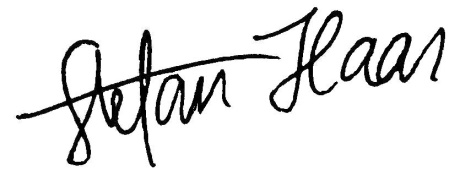 Stefan Haas